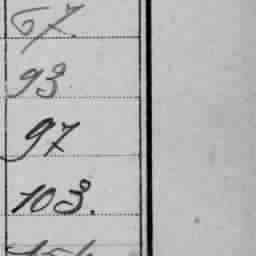 67.
93
97
103.